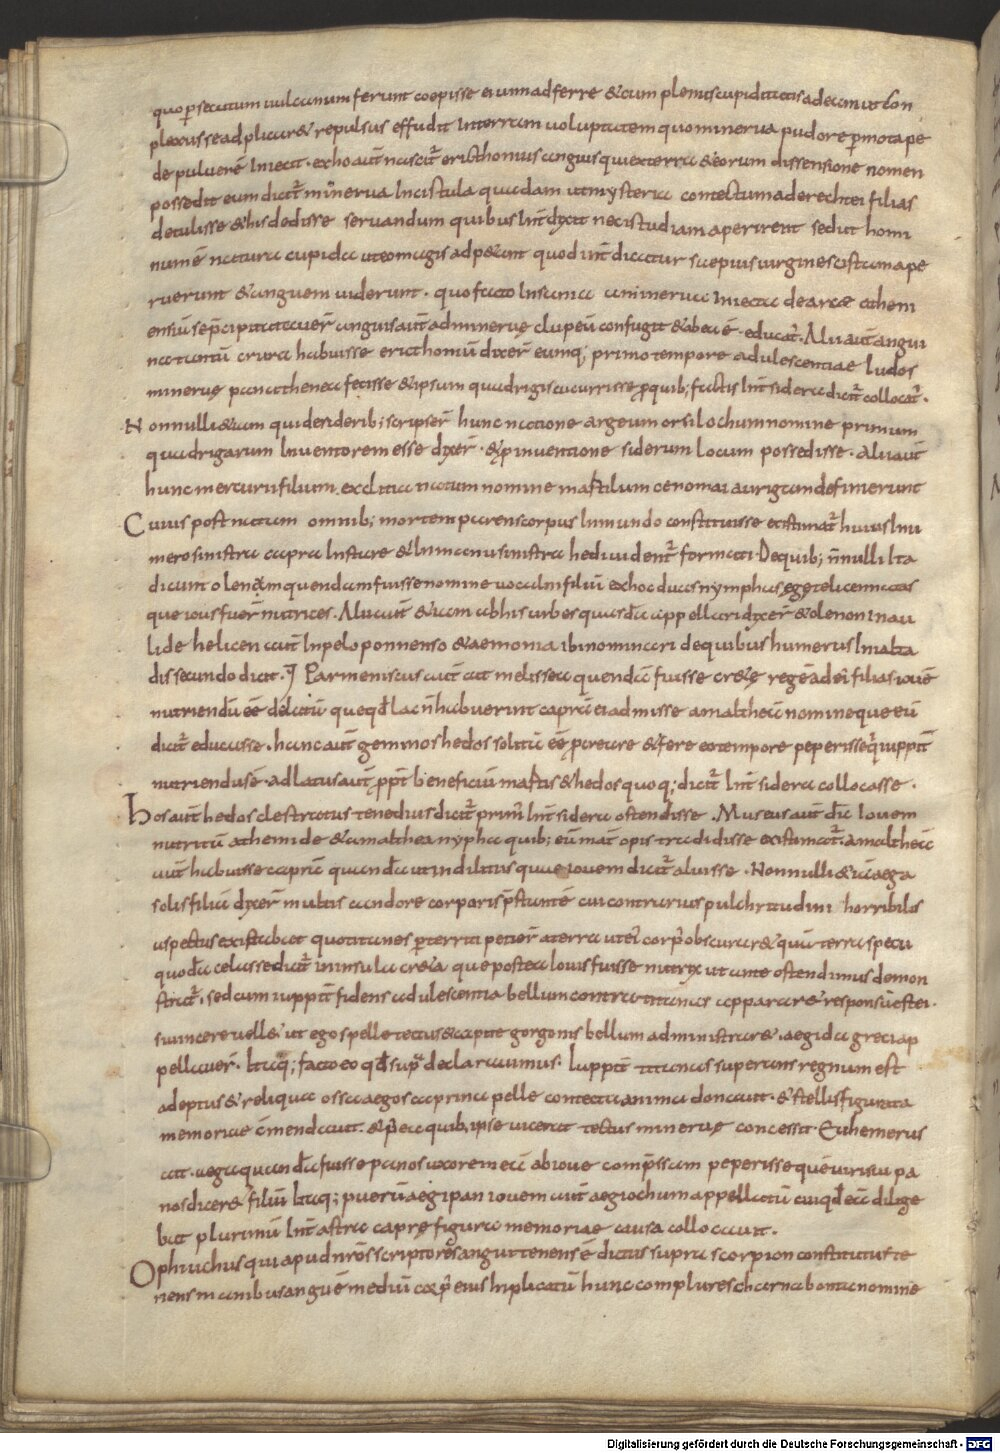 quo p̄secutum uulcanum ferunt coepisse ei uim adferre & cum plenis cupiditatis ad eam ut con
plexus se adplicar& repulsus effudit interram uoluptatem quo minerua pudore p̄mota pe
de puluerē iniecit. ex hoc aut̄ nascit̄ ericthonius anguis qui ex terra & eorum dissensione nomen
possedit eum dicit̄ minerua in cistula quadam ut mysteria contectum ad erechtei filias
detulisse & his dedisse seruandum quibus int̄dixit ne cistulam aperirent sed ut homi
num ē natura cupida ut eo magis adpetant quod int̄dicatur saepius uirgines cistam ape
ruerunt & anguem uiderunt. quo facto insania a minerua iniecta de arce athen
ensiū se p̄cipitauer̄ anguis aut̄ ad mineruę clupeū confugit & ab ea ē educat̄. Alii aut̄ angui
na tantū crura habuisse ericthoniū dixer̄ eumq; primo tempore adulescentiae ludos
mineruę panathenea fecisse & ipsum quadrigis cucurrisse p̄ quib; factis int̄ sidera dicit̄ collocat̄.
Nonnulli etiam qui de siderib; scripser̄ hunc natione argeum orsilochum nomine primum
quadrigarum inuentorem esse dixer̄. & p̄ inuentione siderum locum possedisse. Alii aut̄
hunc mercurii filium, ex clitia natum nomine maſtilum oenomai aurigam definierunt
Cuius post notam omnib; mortem parens corpus in mundo constituisse existimat̄ huius in hu
mero sinistro capra instare & in manu sinistra hedi uident̄ formati. De quib; n̄nulli ita
dicunt olenum quendam fuisse nomine uocalni filiū ex hoc duas nymphas ęge & elicen natas
que iouis fuer̄ nutrices. Alii aut̄ etiam ab his urbes quasdā appellari dixer̄ & olenon in au
lide helicen aut̄ in peloponnenso & aemonia ibi nominari de quibus humerus in alia
dis secundo dicit. Parmeniscus aut̄ ait melissea quendā fuisse cr&ę regē ad ei filias iouē
nutriendū ēē delatū queqd̄ lac n̄ habuerint caprā ei admisse amaltheā nomine que eū
dicit̄ educasse. hanc aut̄ geminos hedos solitā ēē p̄creare & fere eo tempore peperisse q̄ iuppit̄
nutriendus ē adlatus aut̄ ppt̄ beneficiū maſtis & hedos quoq; dicit̄ int̄ sidera collocasse.
Hos aut̄ hedos cleſtratus tenedius dicit̄ primū int̄ sidera ostendisse. Museus aut̄ dic̄ Iouem
nutritū a themide & amalthea nypha quib; eū mat̄ opis tradidisse existimat̄. amaltheā
aut̄ habuisse caprā quandā ut in dilitiis que iouem dicit̄ aluisse. Nonnulli etiā aega
solis filiā dixer̄ multis candore corporis p̄stantē cui contrarius pulchritudini horribilis
aspectus existebat quo titanes p̄territi petier̄ a terra ut ei corp' obscurar& quā terra specu
quodā celasse dicit̄ in insula cr&a que postea Iouis fuisse nutrix ut ante ostendimus demon
strat̄. sed cum iuppit̄ fidens adulescentia bellum contra titanas apparar& responsū est ei.
si uincere uell& ut ego s pelle tectus & capite gorgonis bellum administrar&. aegida greci ap
pellauer̄. Itaq; facto eo qd̄ sup̄ declarauimus. Iuppit̄ titanas superans regnum est
adeptus & reliqua ossa aegos caprina pelle contecta anima donauit. & stellis figurata
memoriae c̄mendauit. & p̄ea quib; ipse uicerat tectus mineruę concessit. Euhemerus
ait. aega quandā fuisse panos uxorem eā ab ioue comp̄ssam peperisse quē uiri sui pa
nos dicer& filiū Itaq; puerū aegipan iouem aut̄ aegiochum appellatū cui qd̄ eā dilige
bat plurimū int̄ astra caprę figura memoriae causa collocauit.
Ophiuchus qui apud nr̄os scriptores anguitenens ē dictus supra scorpion constitutus te
nens manibus anguē mediū corp' eius inplicatū hunc complures charnabonta nomine
Digitalisierung gefördert durch die Deutsche Forschungsgemeinschaft - DFG